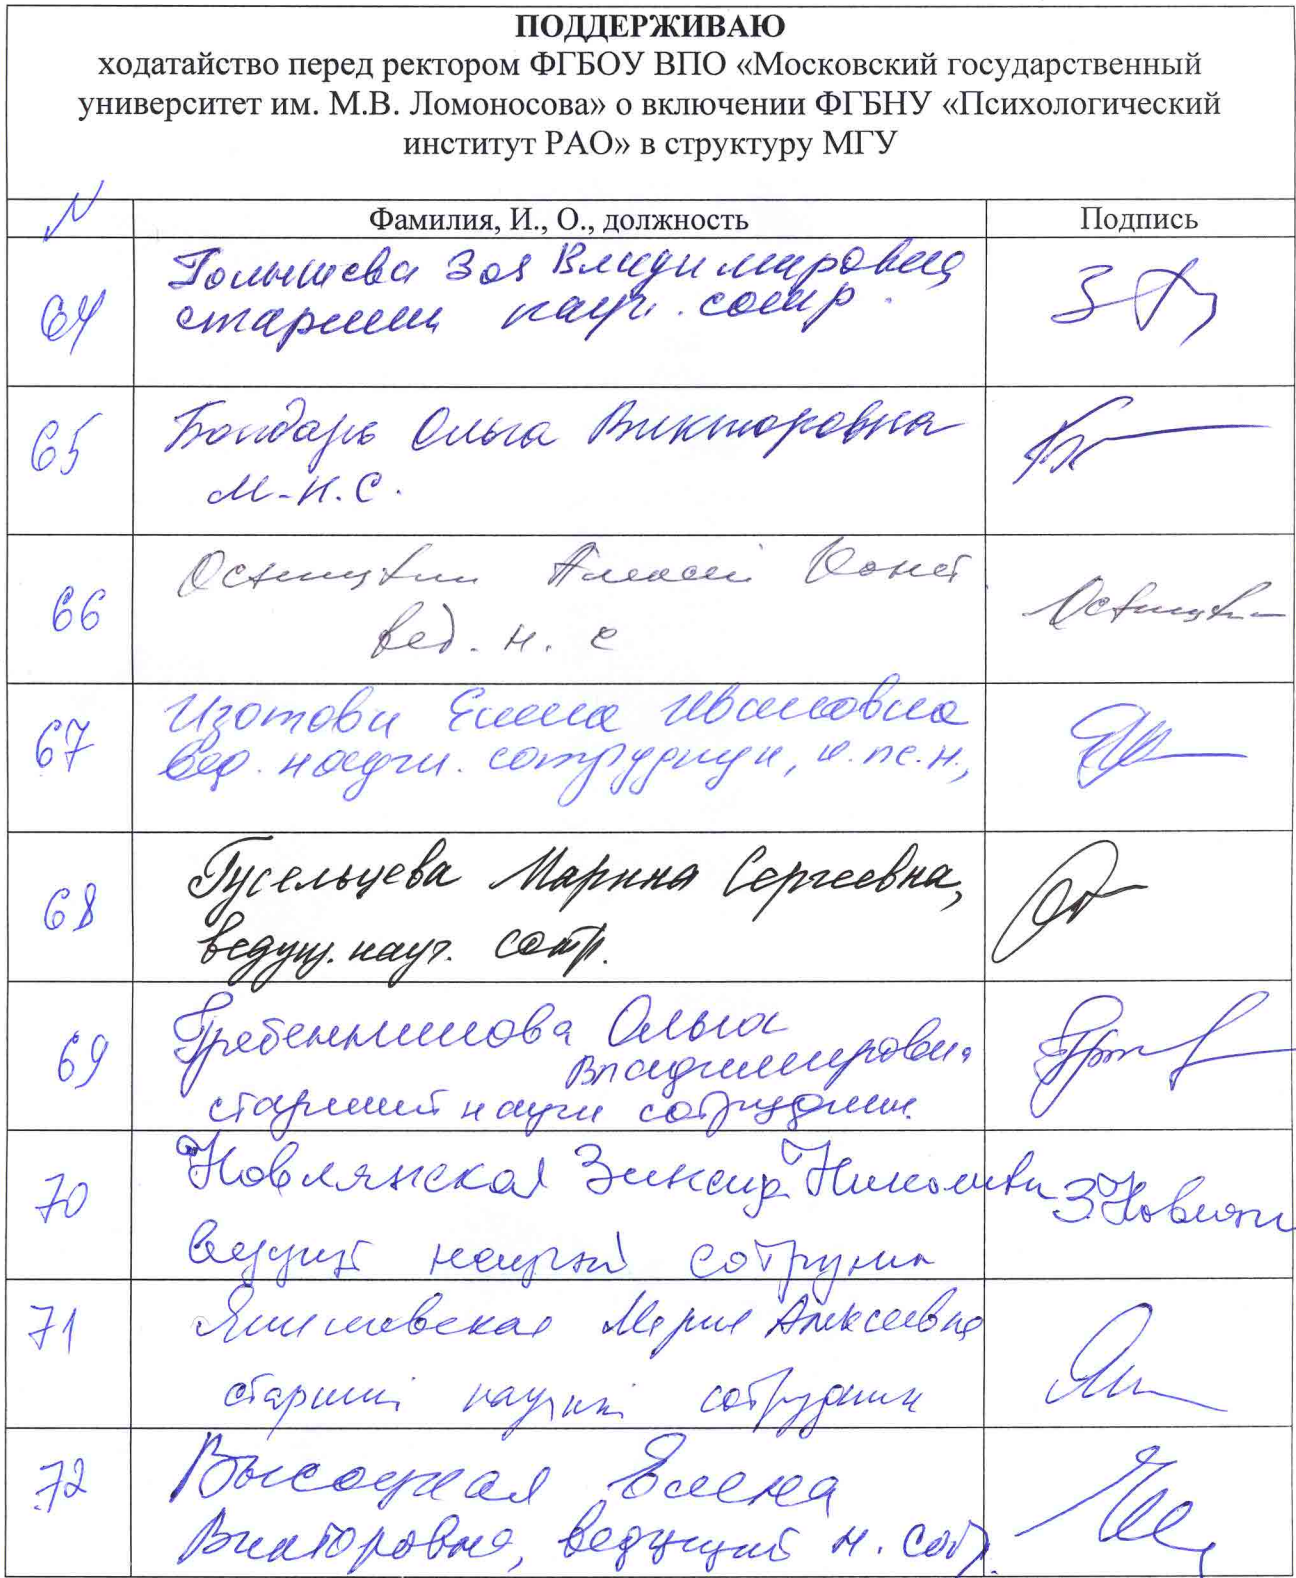 ПОДДЕРЖИВАЮ
ходатайство перед ректором ФГБОУ ВПО «Московский государственный
университет им. М.В. Ломоносова» о включении ФГБНУ «Психологический
институт РАО» в структуру МГУ
N
Фамилия, И., О., должность Подпись
64 Голышева Зоя Владимировна
старший науч. сотр.
65 Бондарь Ольга Викторовна
м.н.с.
66 Осницкий Алексей Конст
вед. н. с
67 Изотова Елена Ивановна
вед. научн. сотрудник, к.пс.н.,
68 Гусельцева Марина Сергеевна,
ведущ. науч. сотр.
69 Гребенникова Ольга
Владимировна
старший научн сотрудник
70 Новлянская Зинаида Николаевна З Новлян
ведущий научный сотрудник
71 Янишевская Мария Алексеевна
старший научный сотрудник
72 Высоцкая Елена
Викторовна, ведущий н. сотр.